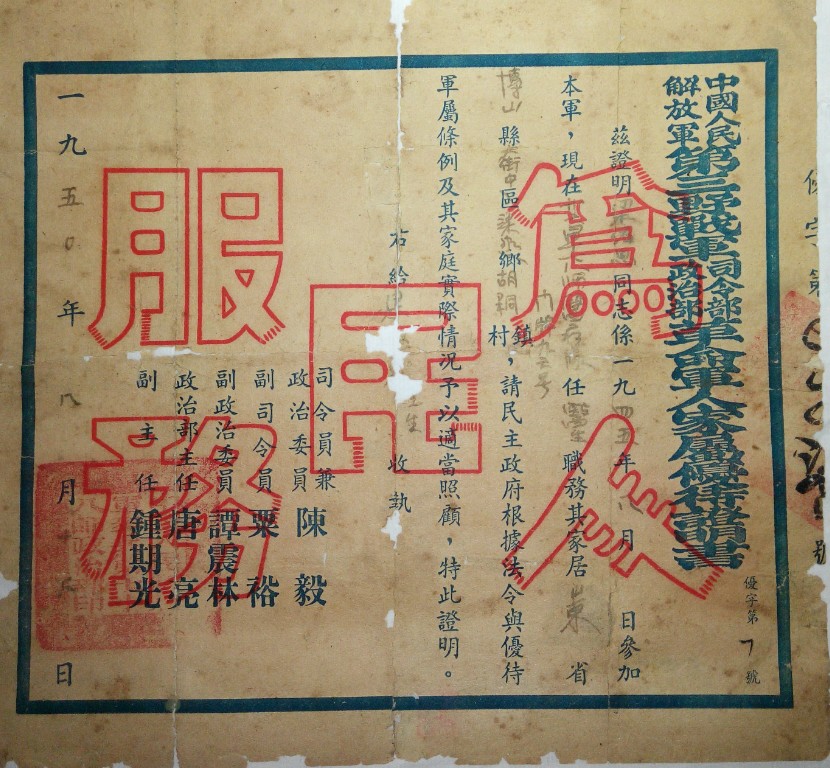 中國人民
解放軍
第三野戰軍
司令部
政治部
革命軍人家屬優待證明書
優字第 號
茲證明 同志係一九四五年八月 日參加
本軍,現在 任醫生職務其家居山東省
博山縣 街中區 鄉胡同
鎮
村
,請民主政府根據法令與優待
軍屬條例及其家庭實際情況予以適當照顧,特此證明。
右給 收執
司令員兼
政治委員
陳毅
副司令員 粟裕
副政治委員 譚震林
政治部主任 唐亮
副主任 鍾期光
一九五〇年八月 日
為人民服務
字第 號